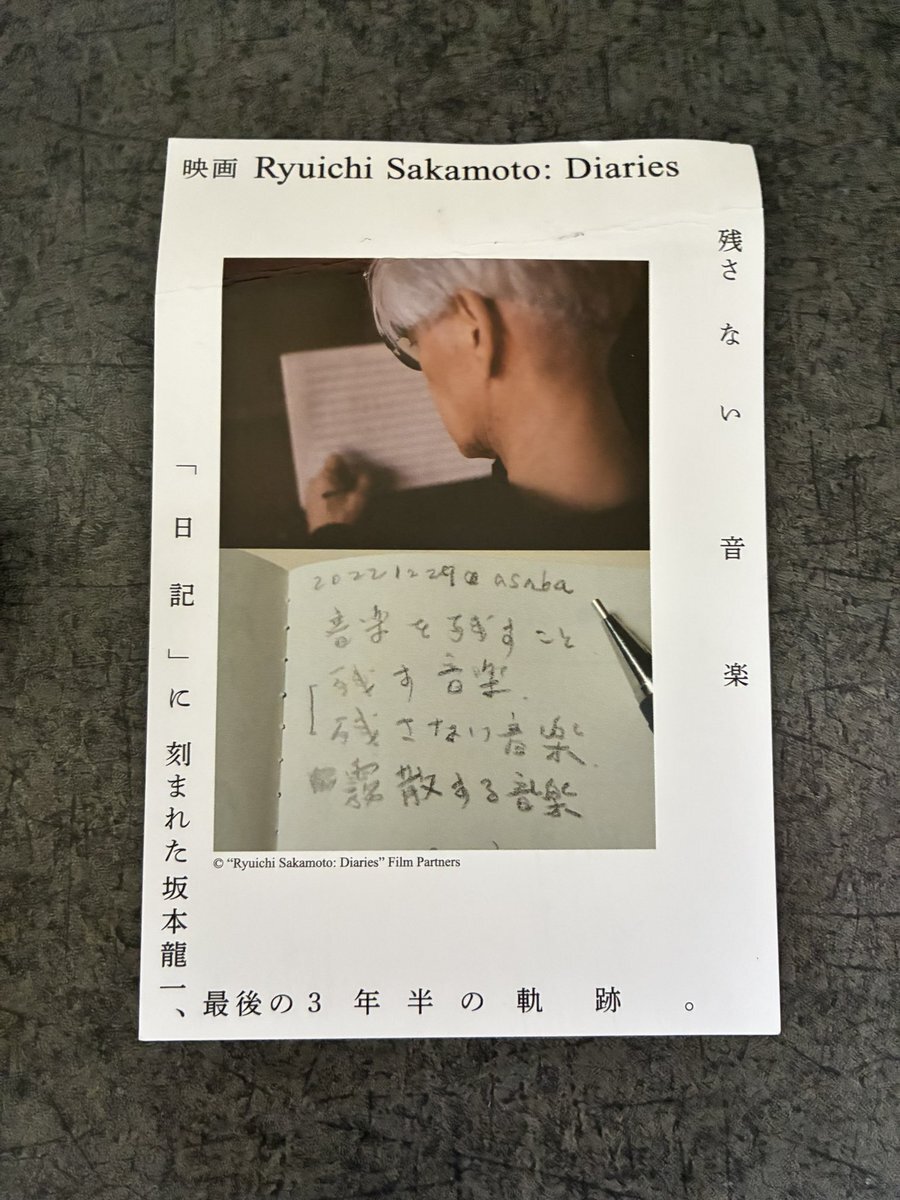 映画 Ryuichi Sakamoto: Diaries
残さない音楽
20221229@asaba
音楽を残すこと
残す音楽.
残さない音楽.
霧散する音楽
© “Ryuichi Sakamoto: Diaries” Film Partners
「日記」に刻まれた坂本龍一、
最後の3年半の軌跡。